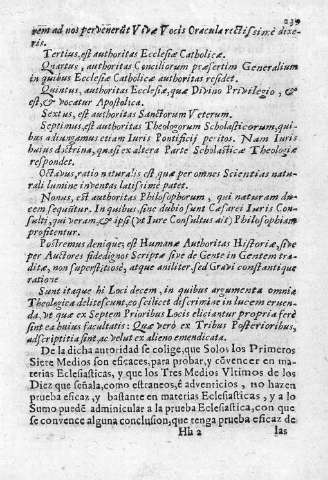 239
rem ad nos pervenerūt Vivæ Vocis Oracula rectissimè dixe-
ris.
Tertius, est authoritas Ecclesiæ Catholicæ.
Quartus, authoritas Conciliorum præsertim Generalium
in quibus Ecclesiæ Catholicæ authoritas residet.
Quintus, authoritas Ecclesiæ, quæ Divino Privilegio, &
est, & vocatur Apostolica.
Sextus, est authoritas Sanctorum Veterum.
Septimus, est authoritas Theologorum Scholasticorum, qui-
bus adiungamus etiam Iuris Pontificij peritos. Nam Iuris
huius doctrina, quasi ex altera Parte Scholasticæ Theologiæ
respondet.
Octavus, ratio naturalis est quæ per omnes Scientias natu-
rali lumine inventas latissimè patet.
Nonus, est authoritas Philosophorum, qui naturam du-
cem sequūtur. In quibus, sine dubio sunt Cæsarei Iuris Consu-
lti, qui veram, & ipsi (ut Iure Consultus ait) Philosophiam
profitentur.
Postremus denique, est Humanæ Authoritas Historiæ, sive
per Auctores fidedignos Scriptæ sive de Gente in Gentem tra-
ditæ, non superstitiosè, atque aniliter, sed Gravi constantique
ratione.
Sunt itaque hi Loci decem, in quibus argumenta omnia
Theologica delitescunt, eo scilicet discrimine in lucem eruen-
da, ut quæ ex Septem Prioribus Locis eliciantur propria ferè
sint ea huius facultatis: Quæ verò ex Tribus Posterioribus,
adscriptitia sint, ac velut ex alieno emendicata.
De la dicha autoridad se colige, que Solos los Primeros
Siete Medios son eficaces, para probar, y cōvencer en ma
terias Eclesiasticas, y que los Tres Medios Vltimos de los
Diez que señala, como estraneos, è adventicios, no hazen
prueba eficaz, y bastante en materias Eclesiasticas, y a lo
Sumo puedē adminicular a la prueba Eclesiastica, con que
se convence alguna conclusion, que tenga prueba eficaz de
Hh 2 las